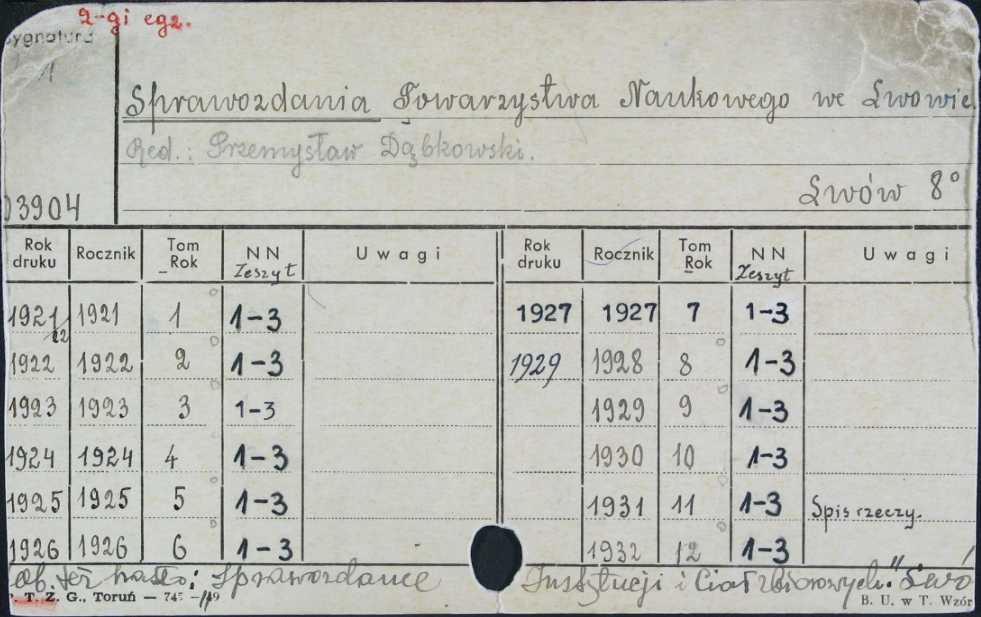 2-gi egz.
Sygnatura
Sprawozdania Towarzystwa Naukowego we Lwowie
Red.: Przemysław Dąbkowski.
Lwów 8°
03904
Rok druku Rocznik Tom Rok NN Zeszyt Uwagi Rok druku Rocznik Tom Rok NN Zeszyt Uwagi
1921/22 1921 1 1-3 1927 1927 7 1-3
1922 1922 2 1-3 1929 1928 8 1-3
1923 1923 3 1-3 1929 9 1-3
1924 1924 4 1-3 1930 10 1-3
1925 1925 5 1-3 1931 11 1-3 Spis rzeczy.
1926 1926 6 1-3 1932 12 1-3
ob. też hasło: Sprawozdanie Instytucji i Ciał zbiorowych."
T. Z. G., Toruń — B. U. w T. Wzór